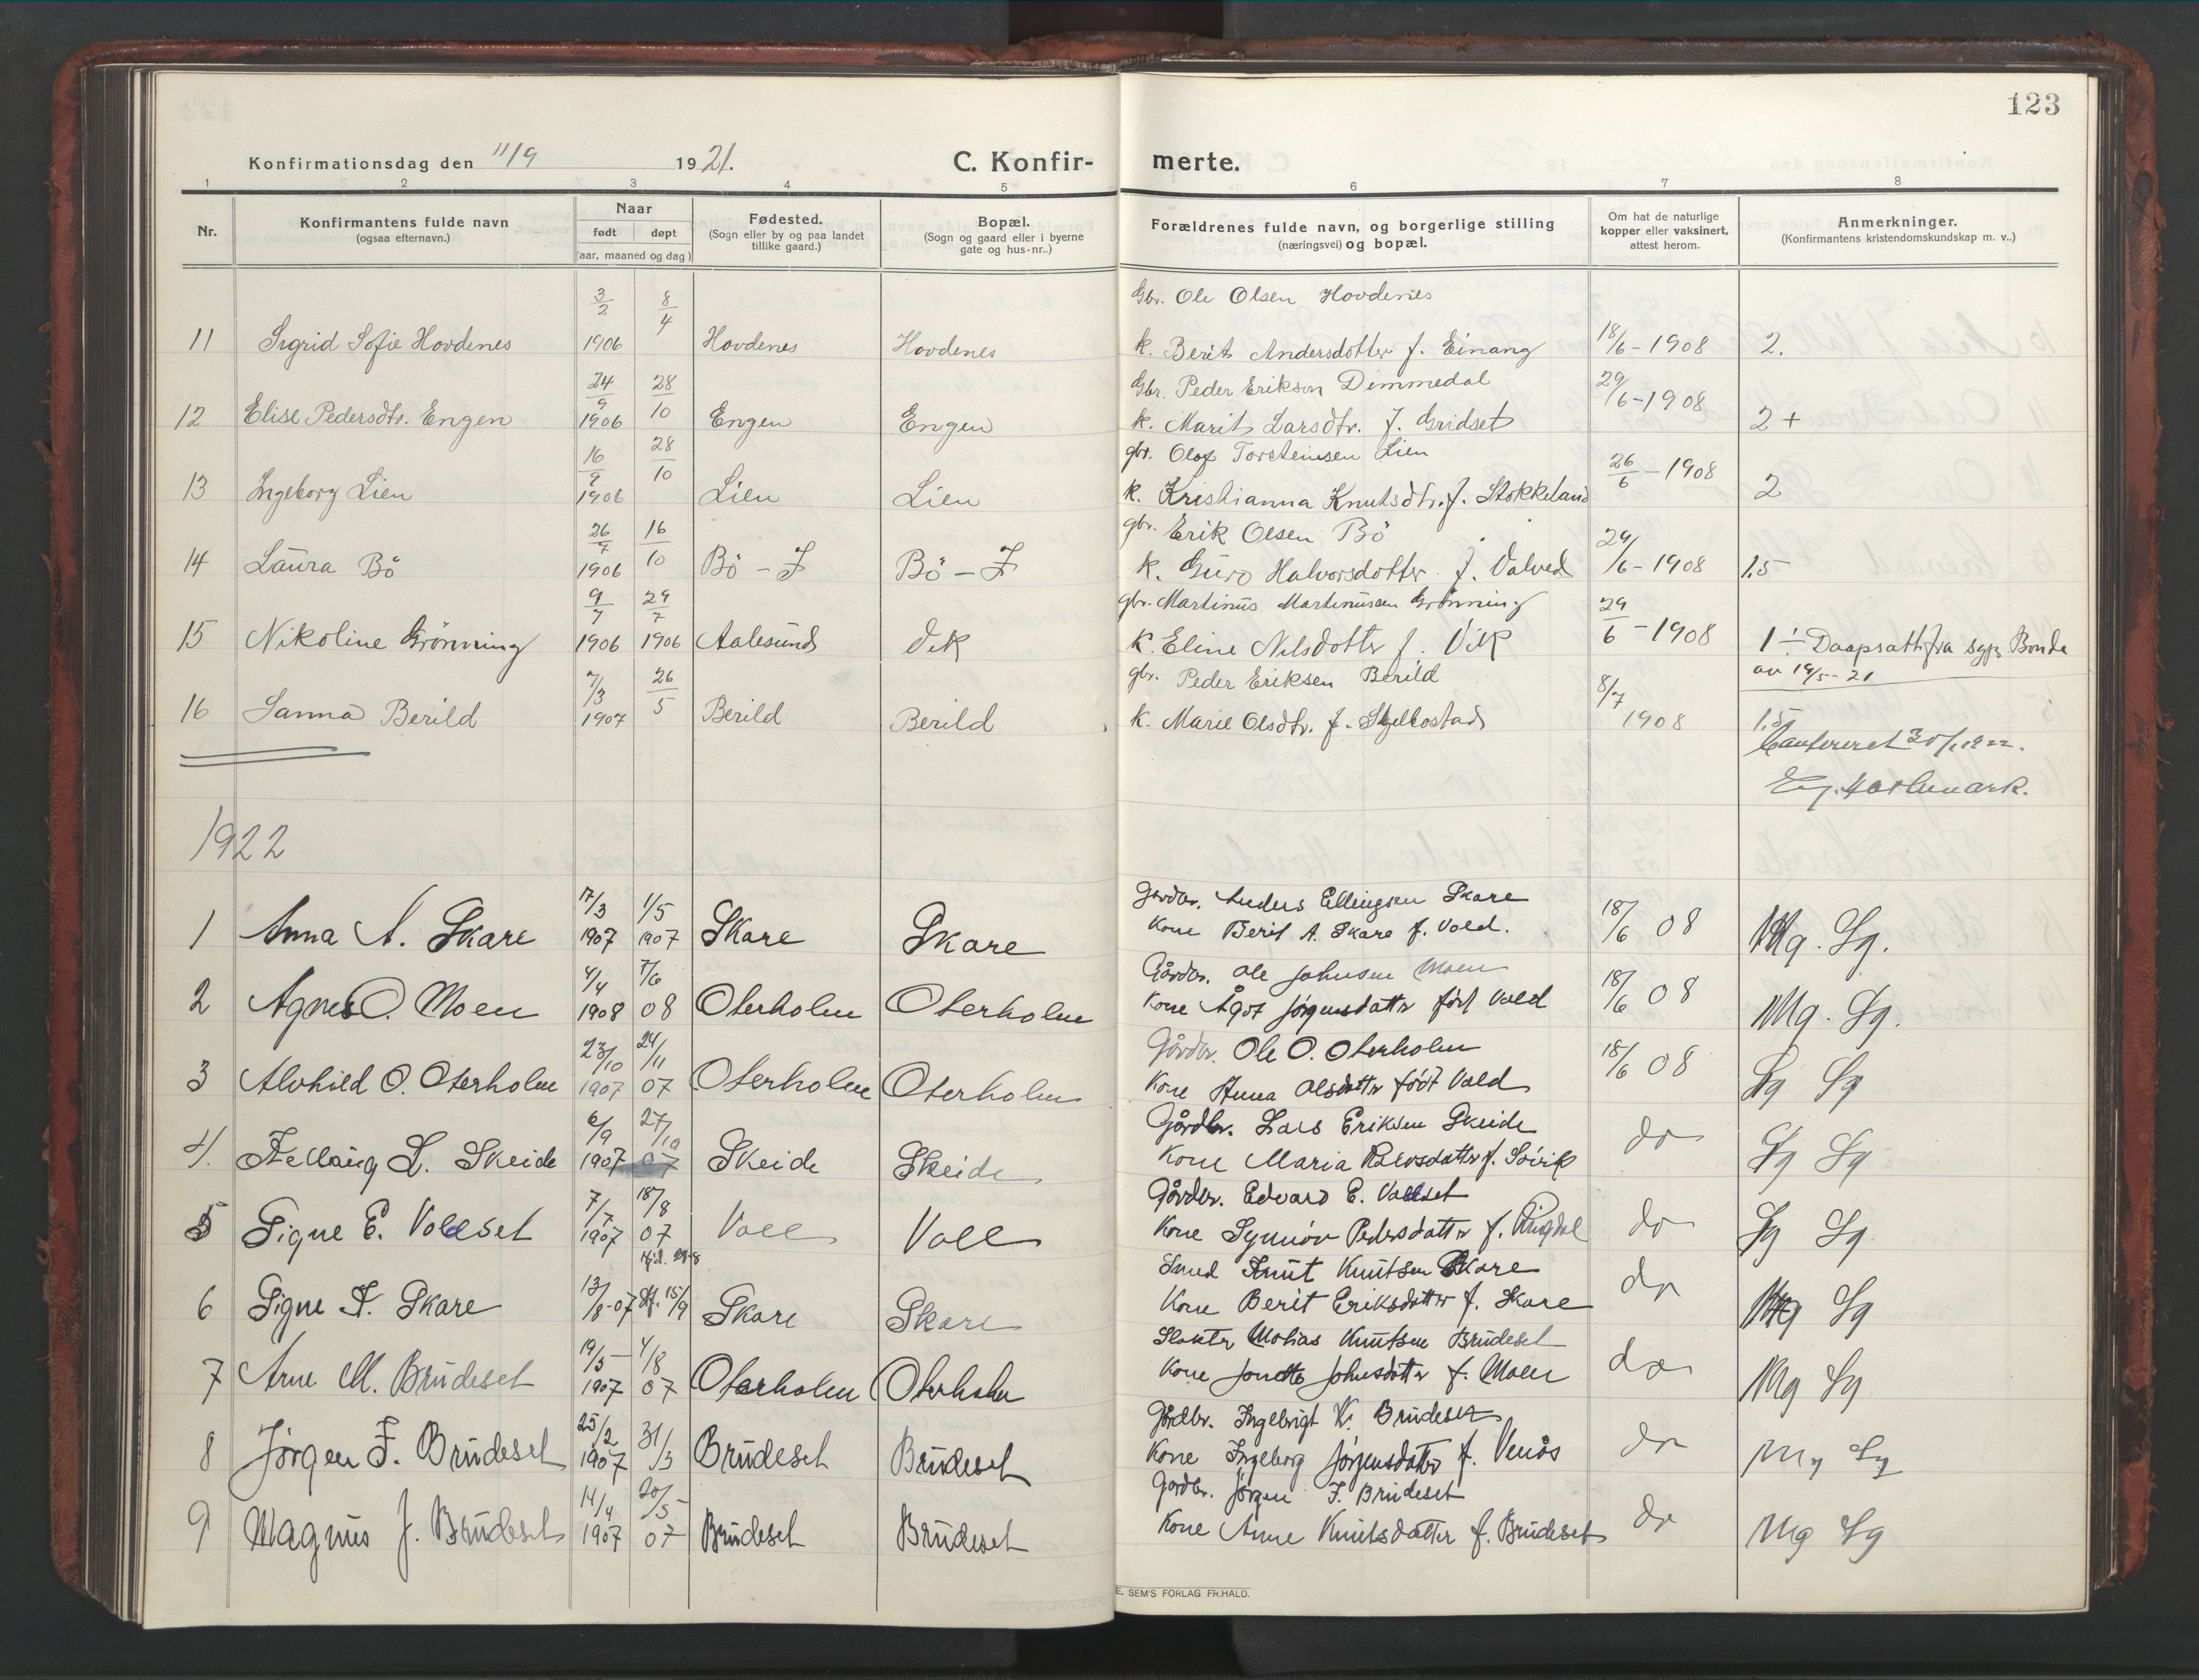 123
Konfirmationsdag den 11/9 1921. C. Konfir- merte.
1 2 3 4 5 6 7 8
Nr. Konfirmantens fulde navn (ogsaa efternavn.) Naar født døpt (aar, maaned og dag) Fødested. (Sogn eller by og paa landet tillike gaard.) Bopæl. (Sogn og gaard eller i byerne gate og hus-nr..) Forældrenes fulde navn, og borgerlige stilling (næringsvei) og bopæl. Om hat de naturlige kopper eller vaksinert, attest herom. Anmerkninger. (Konfirmantens kristendomskundskap m. v..)
3/2 8/4 Gbr. Ole Olsen Hovdenes
11 Sigrid Sofie Hovdenes 1906 Hovdenes Hovdenes k. Berit Andersdotter f. Einang 18/6-1908 2.
24/9 28/10 Gbr. Peder Erikson Dimmedal 29/6-1908
12 Elise Pedersdtr. Engen 1906 Engen Engen k. Marit Larsdtr. f. Gridset 2 +
16/9 28/10 gbr. Olof Torsteinsen Lien 26/6-1908
13 Ingeborg Lien 1906 Lien Lien k. Kristianna Knutsdtr. f. Stokkeland 2
26/7 16/10 gbr. Erik Olsen Bö
14 Laura Bö 1906 Bö - F Bö - F k. Guro Halvorsdotter f. Valved 29/6-1908 1.5
9/7 29/7 gbr. Martinus Martinussen Grönning
15 Nikoline Grönning 1906 1906 Aalesund Vik k. Eline Nilsdotter f. Vik 29/6-1908 1 ÷ Daapsatt. fra sgpr Bonde
7/3 26/5 gbr. Peder Eriksen Berild av 19/5-21
16 Sanna Berild 1907 Berild Berild k. Marie Olsdtr. f. Skjelbostad 8/7 1908 1,5
1922
17/3 1/5 Gardbr. Anders Ellingsen Skare
1 Anna A. Skare 1907 1907 Skare Skare Kone Berit A. Skare f. Vold. 18/6 08 Mg. Sg.
4/4 7/6 Gårdbr. Ole Johnsen Moen
2 Agnes O. Moen 1908 08 Oterholm Oterholm Kone Ågot Jörgensdatter född Vold 18/6 08 Mg. Sg.
23/10 24/11 Gårdbr. Ole O. Oterholm
3 Alvhild O. Oterholm 1907 07 Oterholm Oterholm Kone Anna Olsdatter född Vold 18/6 08 Sg Sg
6/9 27/10 Gårdbr. Lars Eriksen Skeide
4. L. Skeide 1907 07 Skeide Skeide Kone Maria f. Sövik do Sg Sg
7/7 18/8 Gårdbr. Edvard E. Voldset
5 Signe E. Voldset 1907 07 Voll Voll Kone Synnöv Pedersdatter f. Ringdal do Sg Sg
Hjd. 29-8 Smed Knut Knutsen Skare
6 Signe K. Skare 13/8-07 15/9 Skare Skare Kone Berit Eriksdatter f. Skare do Mg Sg
19/5 4/8 Mohias Knutsen Brudeset
7 Arne M. Brudeset 1907 07 Oterholm Oterholm Kone Jonette Johnsdatter f. Moen do Mg Sg
25/2 31/3 Gårdbr. Ingebrigt K. Brudeset
8 Jörgen I. Brudeset 1907 Brudeset Brudeset Kone Ingeborg Jörgensdatter f. Venås do Mg Sg
14/4 20/5 Gårdbr. Jörgen I. Brudeset
9 Magnus J. Brudeset 1907 07 Brudeset Brudeset Kone Anne Knutsdatter f. Brudeset do Mg Sg
E. SEM'S FORLAG FR.HALD.